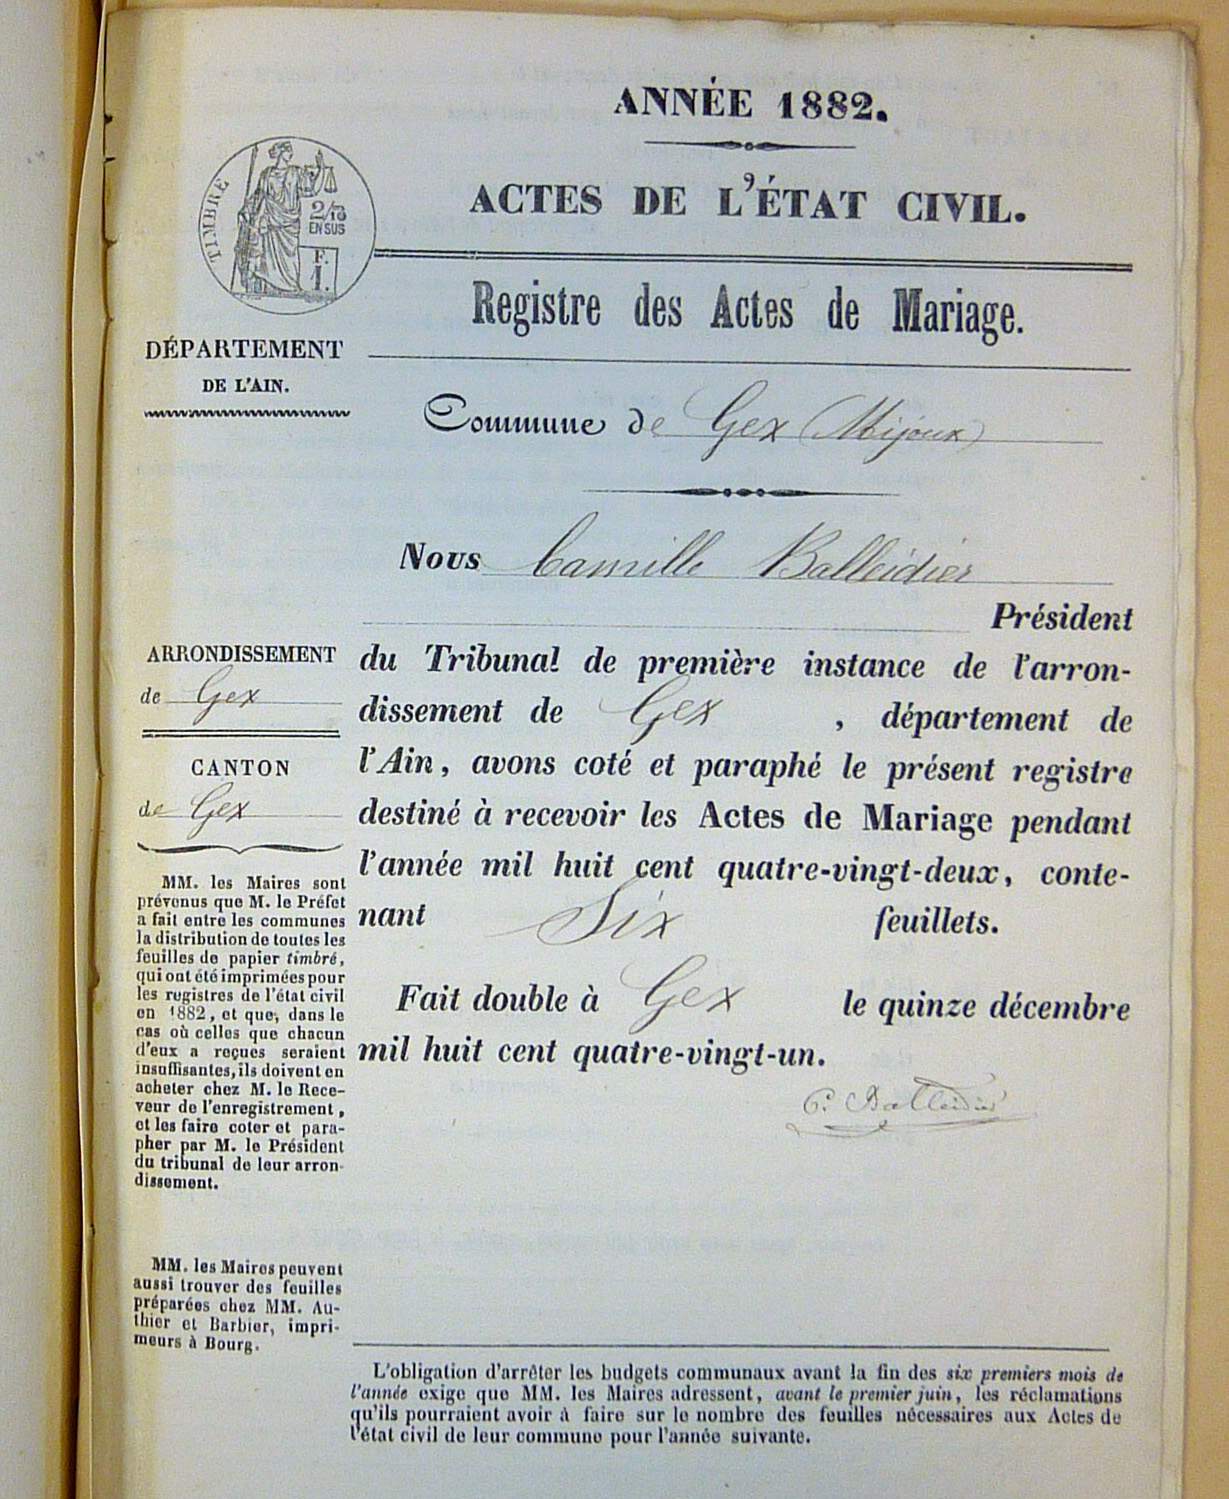 ANNÉE 1882.
ACTES DE L'ÉTAT CIVIL.
TIMBRE
2/10
EN SUS
F.
1.
Registre des Actes de Mariage.
DÉPARTEMENT
DE L'AIN.
Commune de Gex (Mijoux)
Nous Camille Balleidier
Président
du Tribunal de première instance de l'arron-
dissement de Gex , département de
l'Ain, avons coté et paraphé le présent registre
destiné à recevoir les Actes de Mariage pendant
l'année mil huit cent quatre-vingt-deux, conte-
nant Six feuillets.
Fait double à Gex le quinze décembre
mil huit cent quatre-vingt-un.
C. Balleidier
ARRONDISSEMENT
de Gex
CANTON
de Gex
MM. les Maires sont
prévenus que M. le Préfet
a fait entre les communes
la distribution de toutes les
feuilles de papier timbré,
qui ont été imprimées pour
les registres de l'état civil
en 1882, et que, dans le
cas où celles que chacun
d'eux a reçues seraient
insuffisantes, ils doivent en
acheter chez M. le Rece-
veur de l'enregistrement,
et les faire coter et para-
pher par M. le Président
du tribunal de leur arron-
dissement.
MM. les Maires peuvent
aussi trouver des feuilles
préparées chez MM. Au-
thier et Barbier, impri-
meurs à Bourg.
L'obligation d'arrêter les budgets communaux avant la fin des six premiers mois de
l'année exige que MM. les Maires adressent, avant le premier juin, les réclamations
qu'ils pourraient avoir à faire sur le nombre des feuilles nécessaires aux Actes de
l'état civil de leur commune pour l'année suivante.